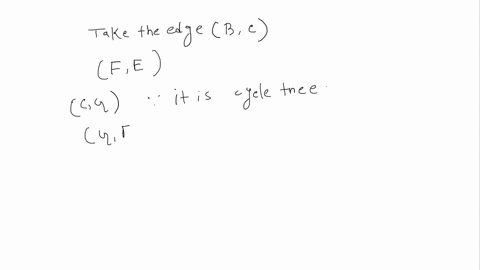 Take the edge (B, C)
(F, E)
(C, G) ∵ it is cycle tree
(G, Γ